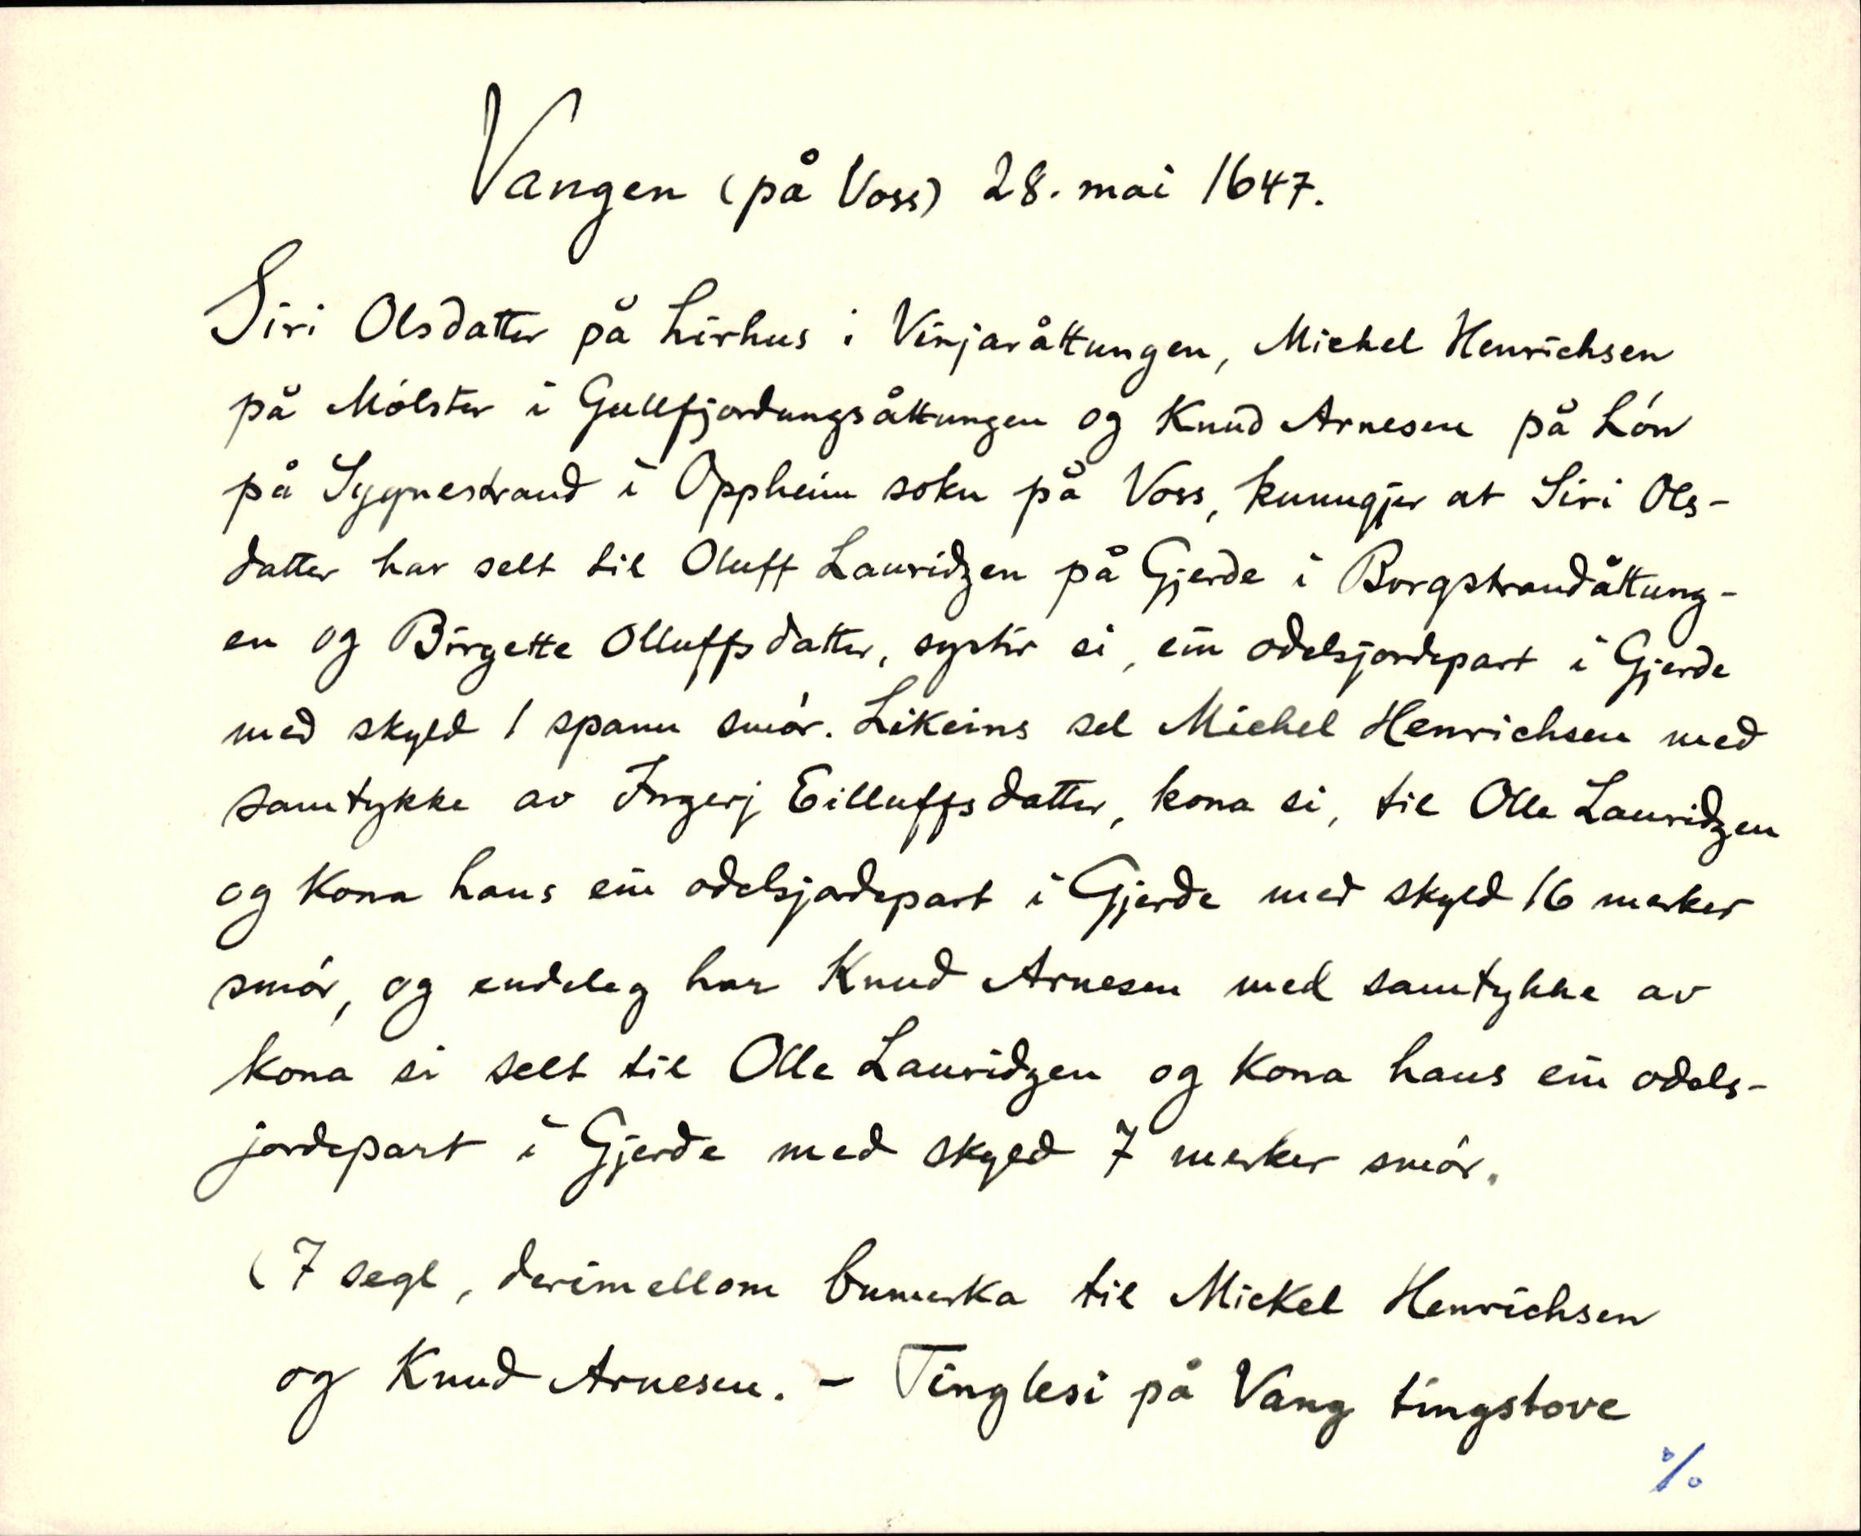 Vangen (på Voss) 28. mai 1647.
Siri Olsdatter på Lirhus i Vinjaråttungen, Michel Henrichsen
på Mólster i Gullfjordungsåttungen og Knud Arnesen på Lón
på Sygnestrand i Oppheim sokn på Voss, kunngjer at Siri Ols-
datter har selt til Oluff Lauridzen på Gjerde i Borgstrandåttung-
en og Birgette Olluffsdatter, syster si, ein odelsjordepart i Gjerde
med skyld 1 spann smór. Likeins sel Michel Henrichsen med
samtykke av Ingerj Eilluffsdatter, kona si, til Olle Lauridzen
og kona hans ein odelsjordepart i Gjerde med skyld 16 merker
smór, og endeleg har Knud Arnesen med samtykke av
kona si selt til Olle Lauridzen og kona hans ein odels-
jordepart i Gjerde med skyld 7 merker smór.
(7 segl, derimellom bumerka til Mickel Henrichsen
og Knud Arnesen. – Tinglesi på Vang tingstove
%